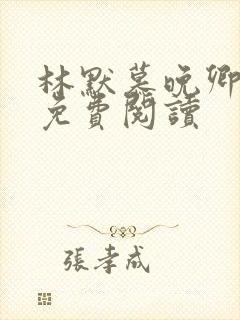 林默慕晚卿
免費閱讀
張孝成